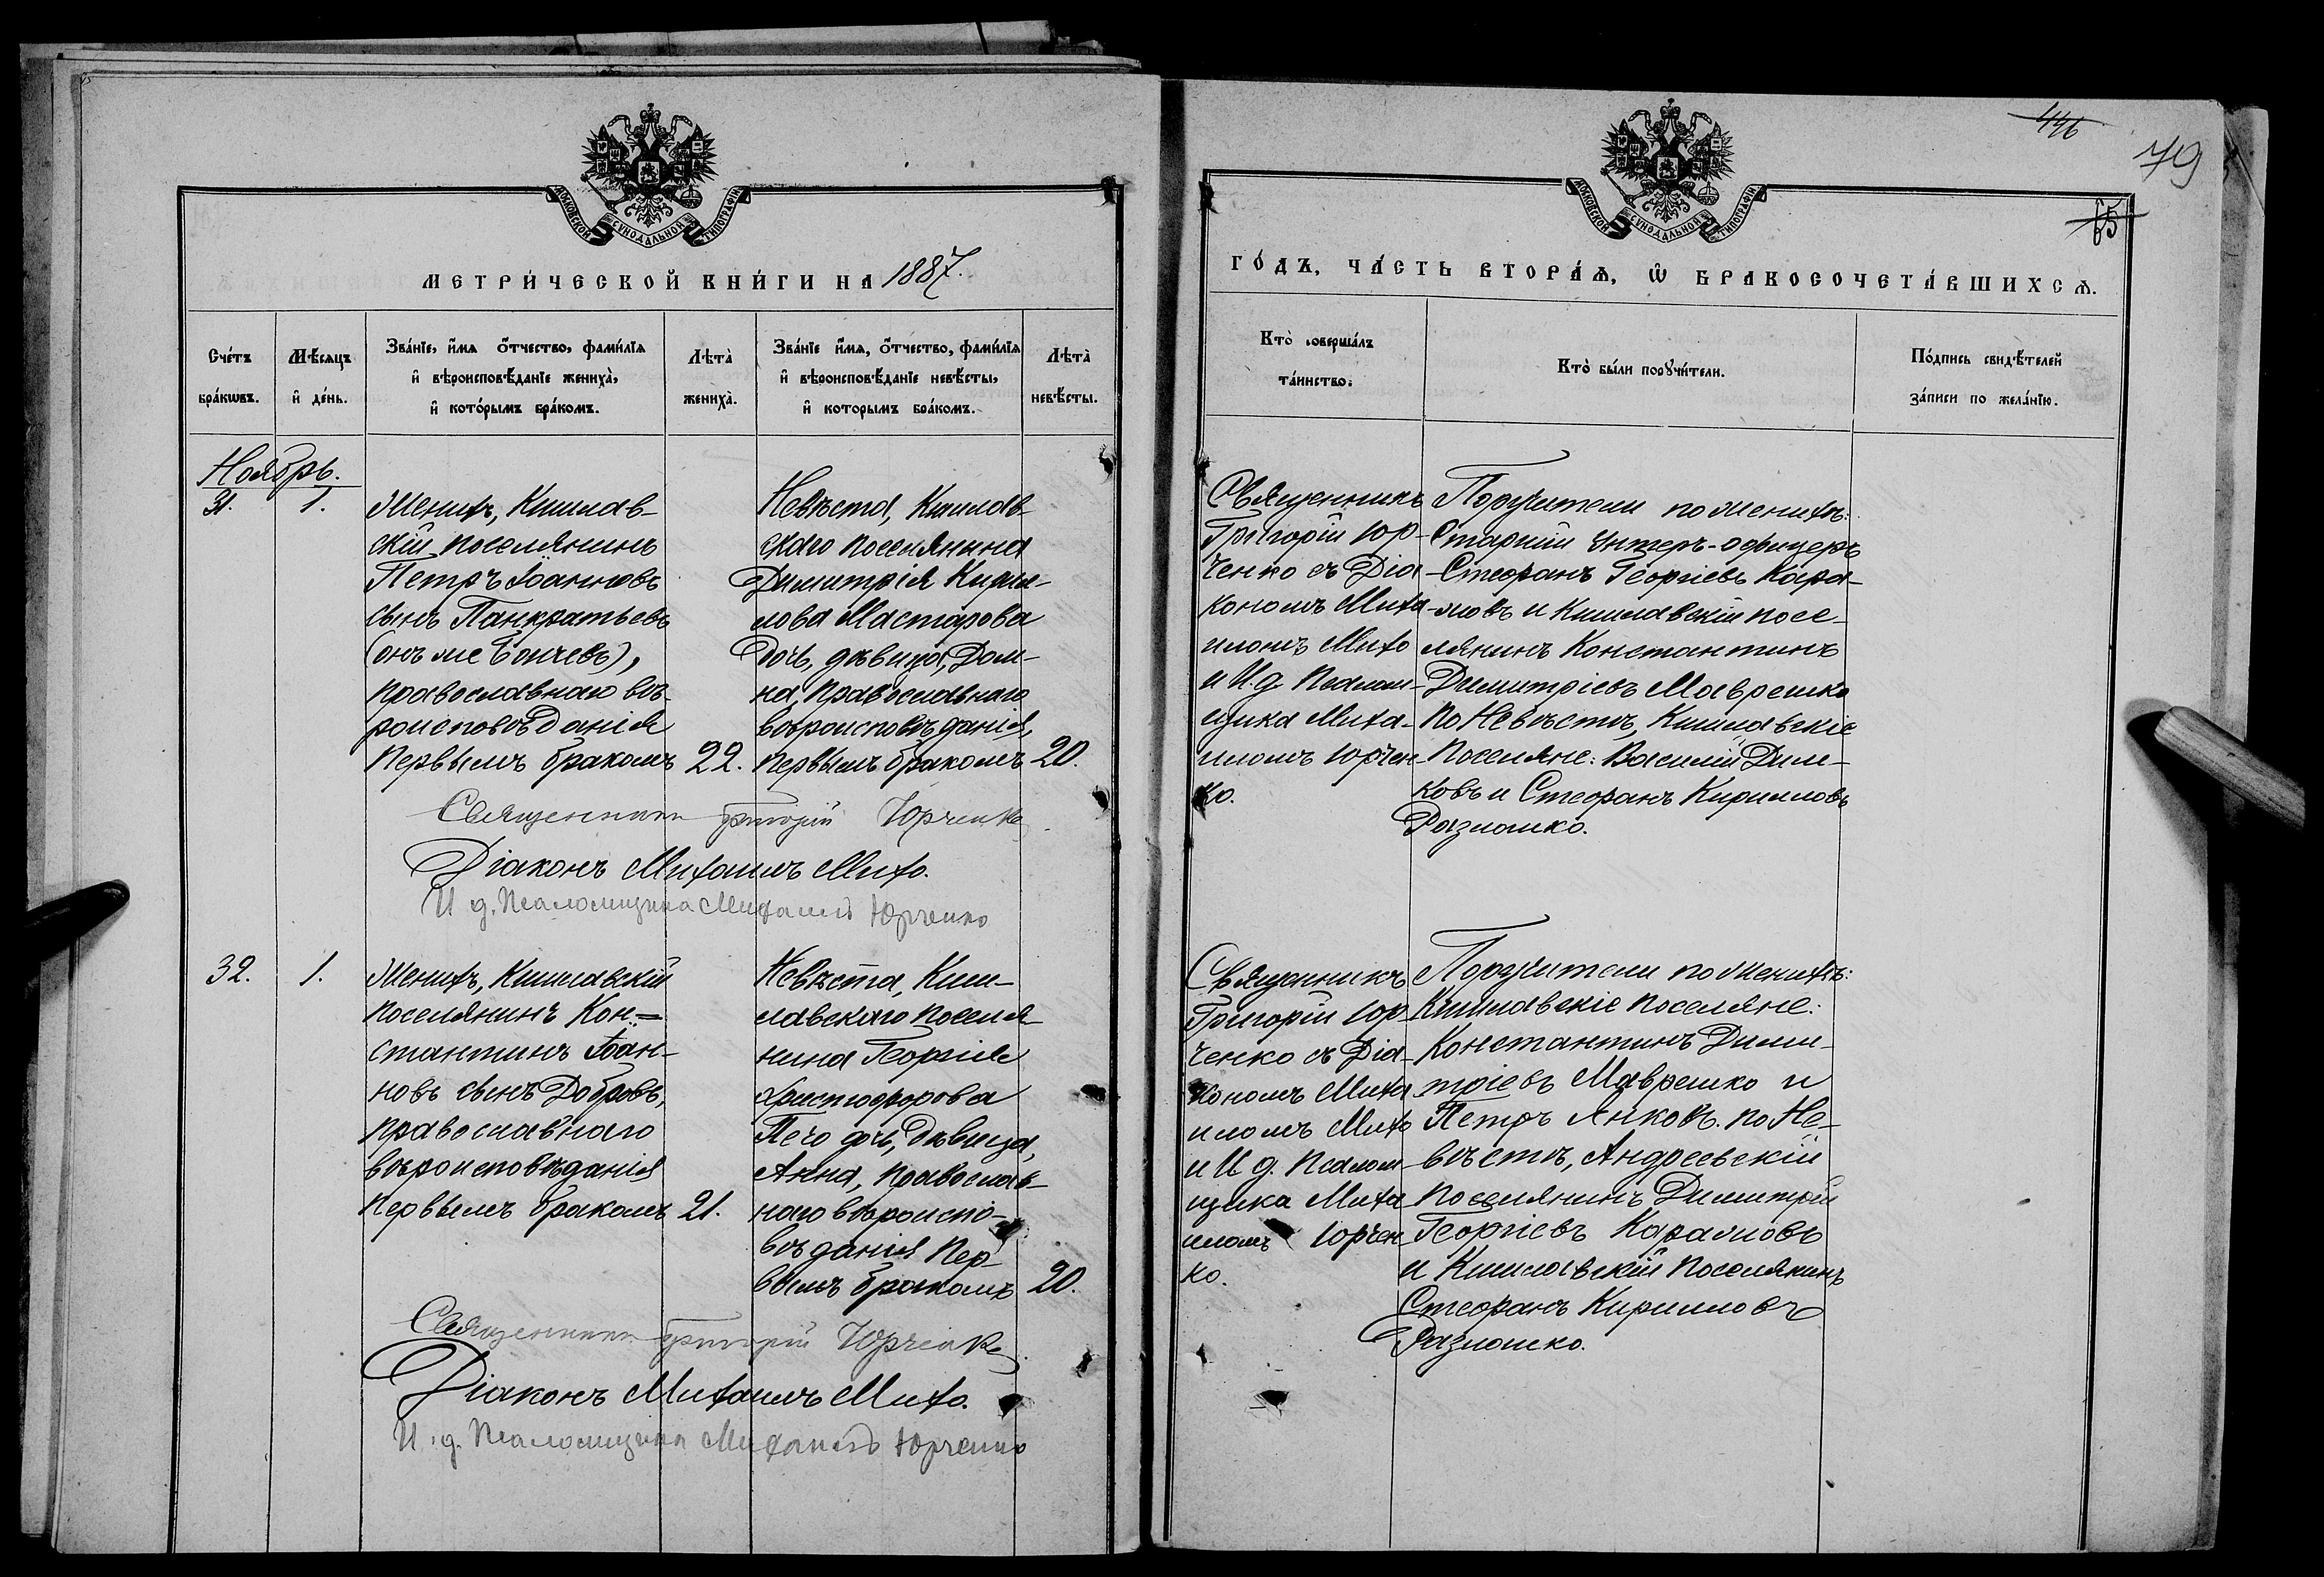 МОСКОВСКОЙ СѴНОДАЛЬНОЙ ТИПОГРАФІИ
МЕТРИ́ЧЕСКОЙ КНИ́ГИ НА 1887.
Сче́тъ бра́кѡвъ.
Мѣ́сяцъ и҆ де́нь.
Зва́нїе, и҆́мя ѻ҆́тчество, фами́лїя
и҆ вѣроисповѣ́данїе жениха̀,
и҆ кото́рымъ бра́комъ.
Лѣта̀ жениха̀.
Зва́нїе и҆́мя, ѻ҆́тчество, фами́лїя
и҆ вѣроисповѣ́данїе невѣ́сты,
и҆ которымъ бра́комъ.
Лѣта̀ невѣ́сты.
Ноябрь.
31.
1.
Женихъ, Кишлав-
скій поселянинъ
Петръ Іоанновъ
сынъ Панкратьевъ
(онъ же Бончевъ),
православнаго вѣ-
роисповѣданія
первымъ бракомъ
22.
Невѣста, Кишлав-
скаго поселянина
Димитрія Кирил-
лова Мастарова
дочь, дѣвица, Дом-
на, православнаго
вѣроисповѣданія,
первымъ бракомъ
20.
Священникъ Григорій Юрченко
Діаконъ Михаилъ Михо.
И д. Псаломщика Михаилъ Юрченко
32.
1.
Женихъ, Кишлавскій
поселянинъ Кон-
стантинъ Іоан-
новъ сынъ Добровъ,
православнаго
вѣроисповѣданія
первымъ бракомъ
21.
Невѣста, Киш-
лавскаго поселя-
нина Георгія
Христофорова
Печо дочь, дѣвица,
Анна, православ-
наго вѣроиспо-
вѣданія пер-
вымъ бракомъ
20.
Священникъ Григорій Юрченко
Діаконъ Михаилъ Михо.
И. д. Псаломщика Михаилъ Юрченко
446
79
65
МОСКОВСКОЙ СѴНОДАЛЬНОЙ ТИПОГРАФІИ
ГО́ДЪ, ЧА́СТЬ ВТОРА́Ѧ, Ѡ҆ БРАКОСОЧЕТА́ВШИХСѦ.
Кто̀ соверша́лъ
та́инство.
Кто̀ бы́ли порꙋчи́тели.
По́дпись свидѣ́телей
за́писи по жела́нїю.
Священникъ
Григорій Юр-
ченко съ Діа-
кономъ Миха-
иломъ Михо
и И. д. Псалом-
щика Миха-
иломъ Юрчен-
ко.
Поручители по женихѣ:
Старшій Унтеръ-офицеръ
Стефанъ Георгіевъ Кара-
жовъ и Кишлавскій посе-
лянинъ Константинъ
Димитріевъ Маврешко
По Невѣстѣ, Кишлавскіе
поселяне: Василій Дим-
ковъ и Стефанъ Кирилловъ
Разложко.
Священникъ
Григорій Юр-
ченко съ Діа-
кономъ Миха
иломъ Михо
и И д. Псалом
щика Миха
иломъ Юрчен
ко.
Поручители по женихѣ:
Кишлавскіе поселяне:
Константинъ Дими-
тріевъ Маврешко и
Петръ Янковъ. по Не-
вѣстѣ, Андреевскій
поселянинъ Димитрій
Георгіевъ Каражовъ
и Кишлавскій поселянинъ
Стефанъ Кирилловъ
Разложко.